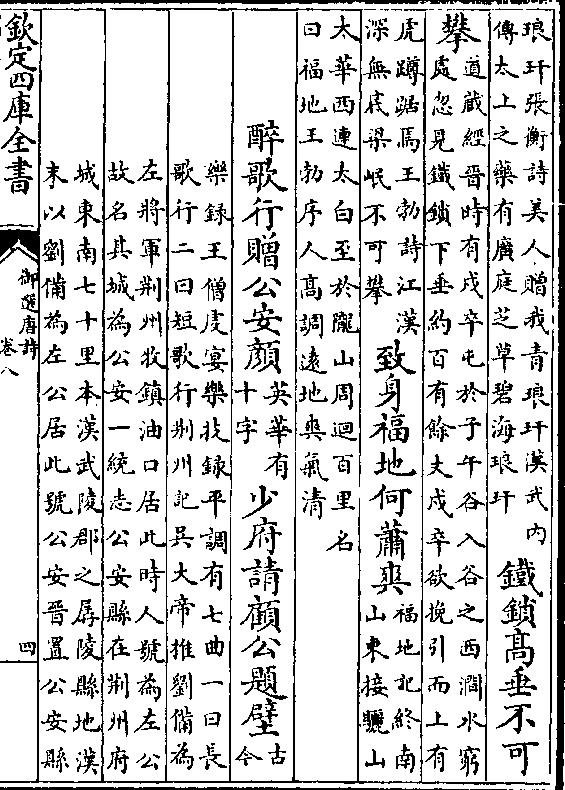 琅玕張衡詩美人贈我青琅玕漢武内
傳太上之藥有廣庭芝草碧海琅玕
鐵鎖高垂不可
攀
道藏經晉時有戍卒屯於子午谷入谷之西澗水窮
處忽見鐵鎖下垂約百有餘丈戍卒欲挽引而上有
虎蹲踞焉王勃詩江漢
深無底梁岷不可攀
致身福地何蕭爽
福地記終南
山東接驪山
太華西連太白至於隴山周迴百里名
曰福地王勃序人高調遠地爽氣清
醉歌行贈公安顏
英華有
十字
少府請顧公題壁
古
今
樂録王僧䖍宴樂技録平調有七曲一曰長
歌行二曰短歌行荆州記吳大帝推劉備為
左將軍荆州牧鎮油口居此時人號為左公
故名其城為公安一統志公安縣在荆州府
城東南七十里本漢武陵郡之孱陵縣地漢
末以劉備為左公居此號公安晉置公安縣
欽定四庫全書
御選唐詩
卷八
四